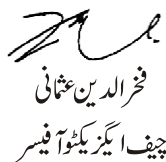 فخرالدین عثمانی
چیف ایگزیکٹو آفیسر